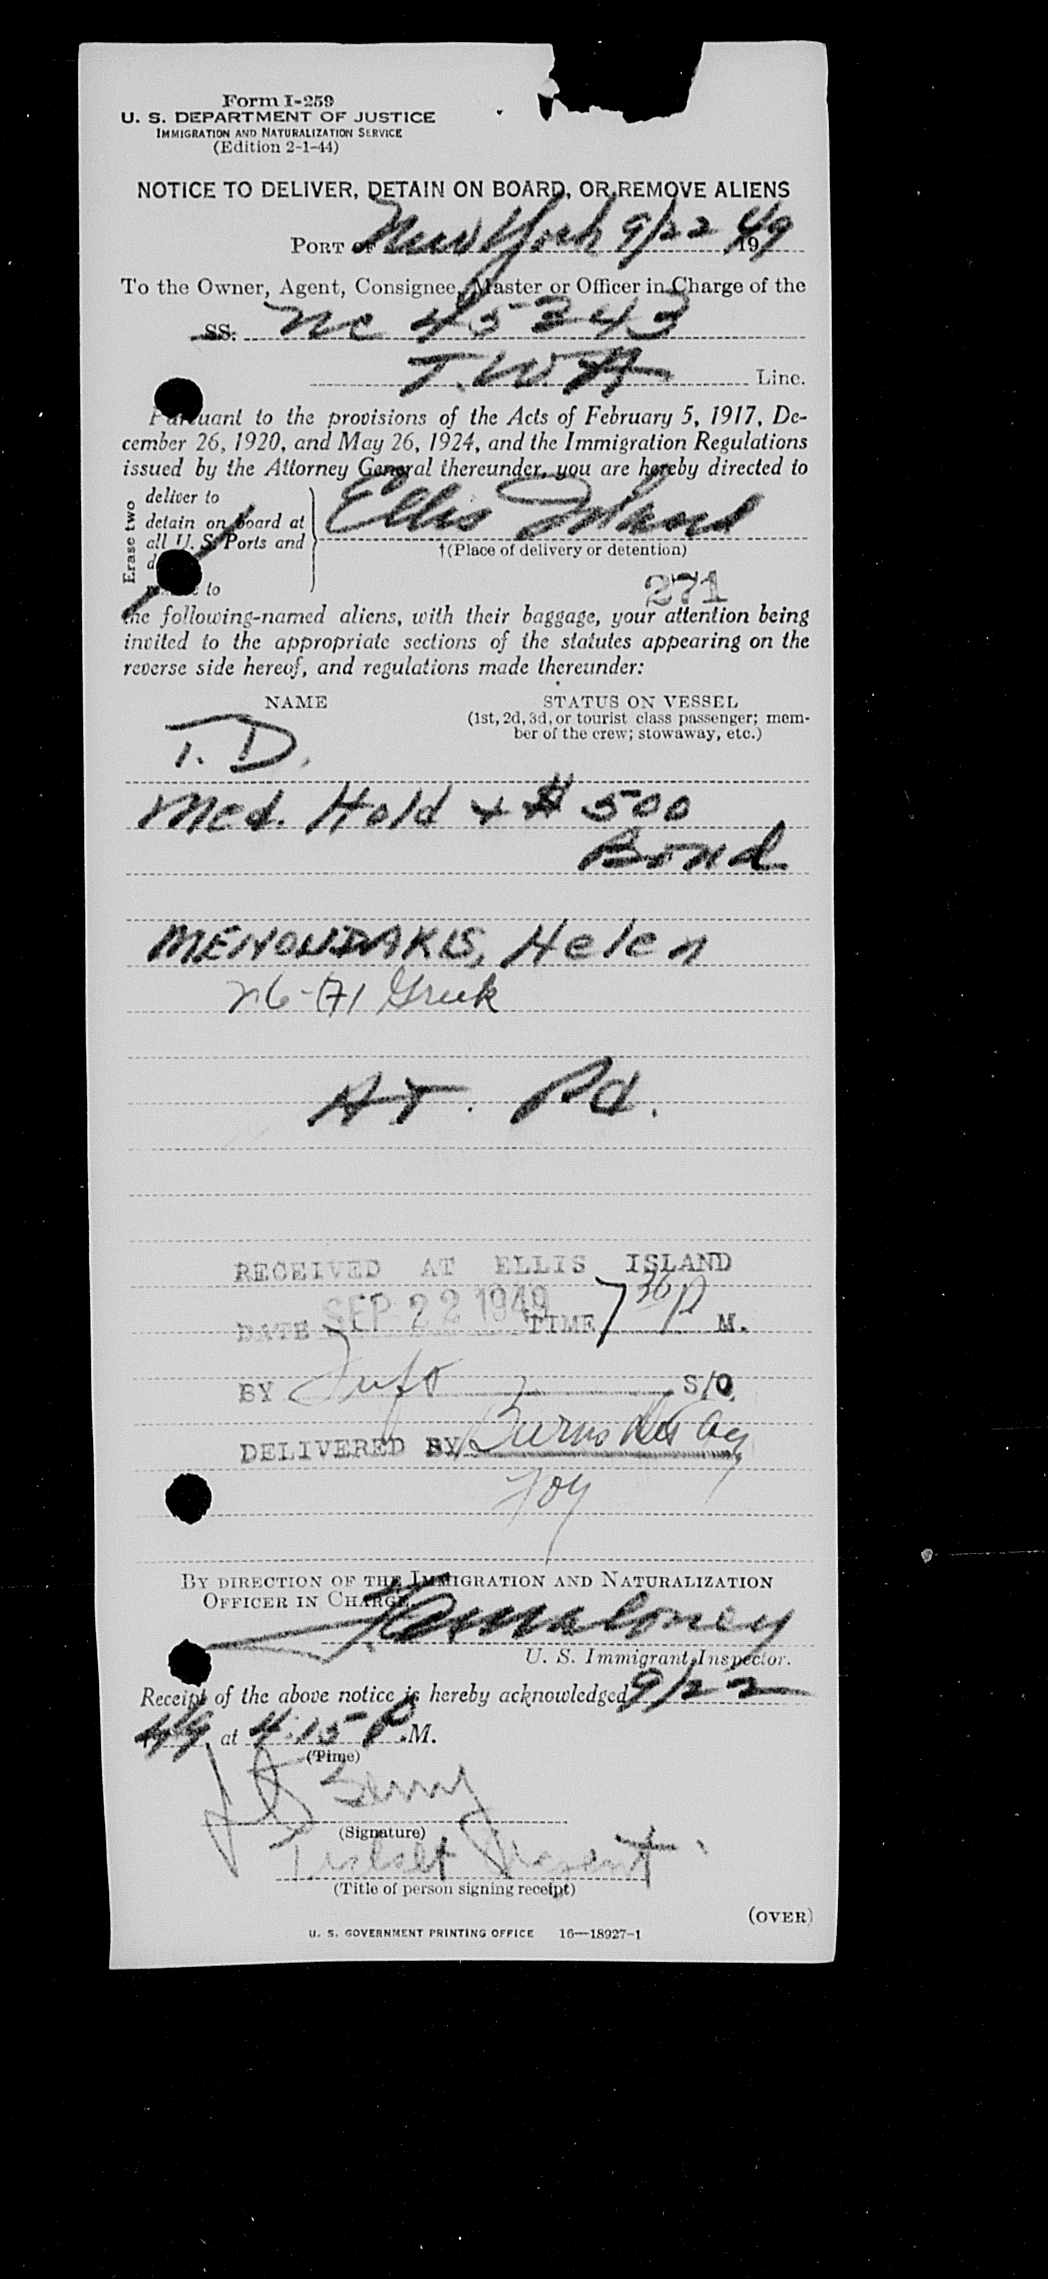 Form I-259
U. S. DEPARTMENT OF JUSTICE
IMMIGRATION AND NATURALIZATION SERVICE
(Edition 2-1-44)
NOTICE TO DELIVER, DETAIN ON BOARD, OR REMOVE ALIENS
PORT OF New York 9/22, 1949
To the Owner, Agent, Consignee, Master or Officer in Charge of the
SS. NC 45343
T.W.A Line.
Pursuant to the provisions of the Acts of February 5, 1917, De-
cember 26, 1920, and May 26, 1924, and the Immigration Regulations
issued by the Attorney General thereunder, you are hereby directed to
Erase two
deliver to
detain on board at
all U. S. Ports and
to
Ellis Island
†(Place of delivery or detention)
271
the following-named aliens, with their baggage, your attention being
invited to the appropriate sections of the statutes appearing on the
reverse side hereof, and regulations made thereunder:
NAME STATUS ON VESSEL
(1st, 2d, 3d, or tourist class passenger; mem-
ber of the crew; stowaway, etc.)
T. D.
Med. Hold + $500
Bond
MENOUDAKIS, Helen
26- Greek
HT. Pd.
RECEIVED AT ELLIS ISLAND
DATE SEP 22 1949 TIME 7 30 P M.
BY S/O
DELIVERED BY Burns Det Agy
Foy
BY DIRECTION OF THE IMMIGRATION AND NATURALIZATION
OFFICER IN CHARGE
Maloney
U. S. Immigrant Inspector.
Receipt of the above notice is hereby acknowledged 9/22
49 at 4:15 P.M.
(Time)
Berry
(Signature)
(Title of person signing receipt)
(OVER)
U. S. GOVERNMENT PRINTING OFFICE 16—18927-1